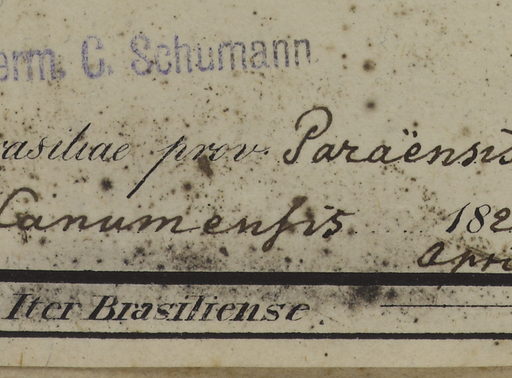 erm. C. Schumann
rasiliae prov. Paraënsis
Canumensis 182
Apri
Iter Brasiliense